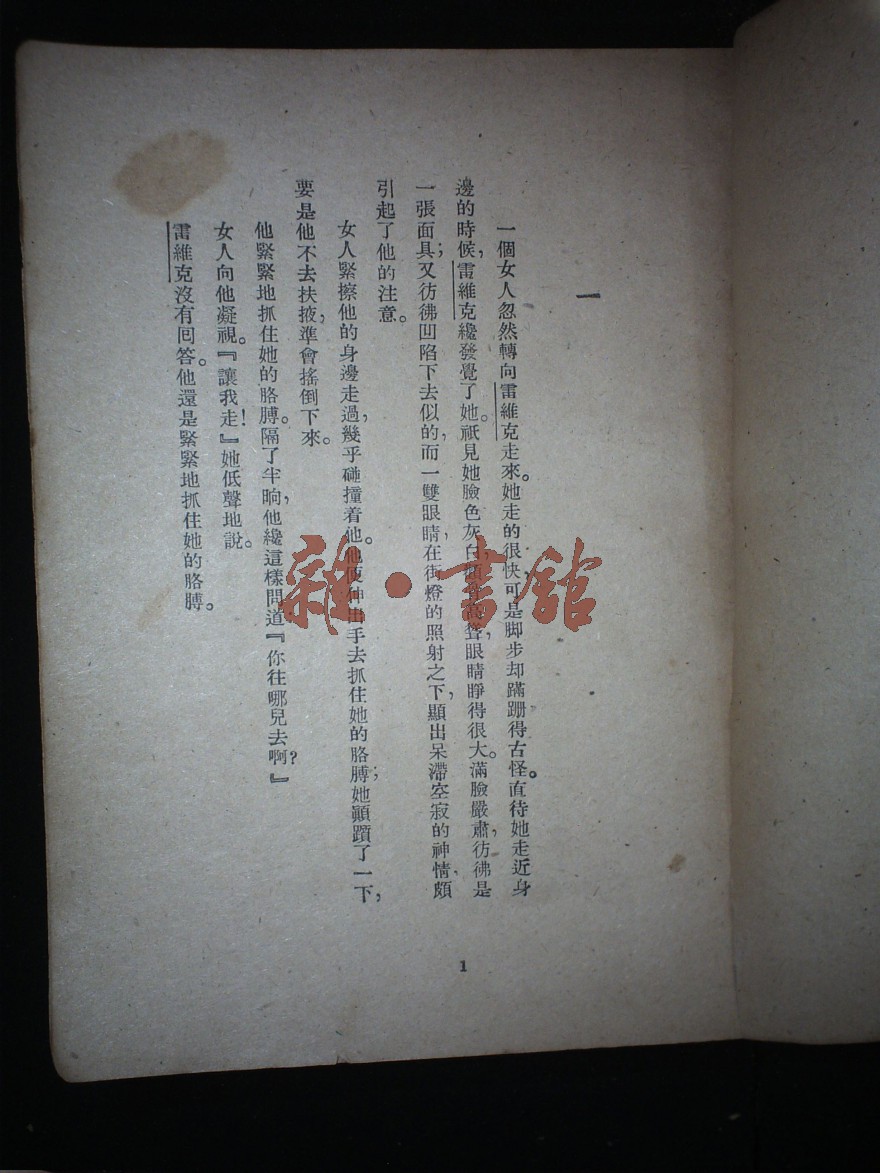 一
一個女人忽然轉向雷維克走來。她走的很快,可是脚步却蹣跚得古怪。直待她走近身
邊的時候,雷維克纔發覺了她。祇見她臉色灰白,顴骨高聳,眼睛睜得很大。滿臉嚴肅,彷彿是
一張面具;又彷彿凹陷下去似的,而一雙眼睛在街燈的照射之下,顯出呆滯空寂的神情,頗
引起了他的注意。
女人緊擦他的身邊走過,幾乎碰撞着他。他便伸出手去抓住她的胳膊;她顚躓了一下,
要是他不去扶掖,準會搖倒下來。
他緊緊地抓住她的胳膊。隔了半晌,他纔這樣問道『你往哪兒去啊?』
女人向他凝視。『讓我走!』她低聲地說。
雷維克沒有囘答。他還是緊緊地抓住她的胳膊。
1
雜·書館